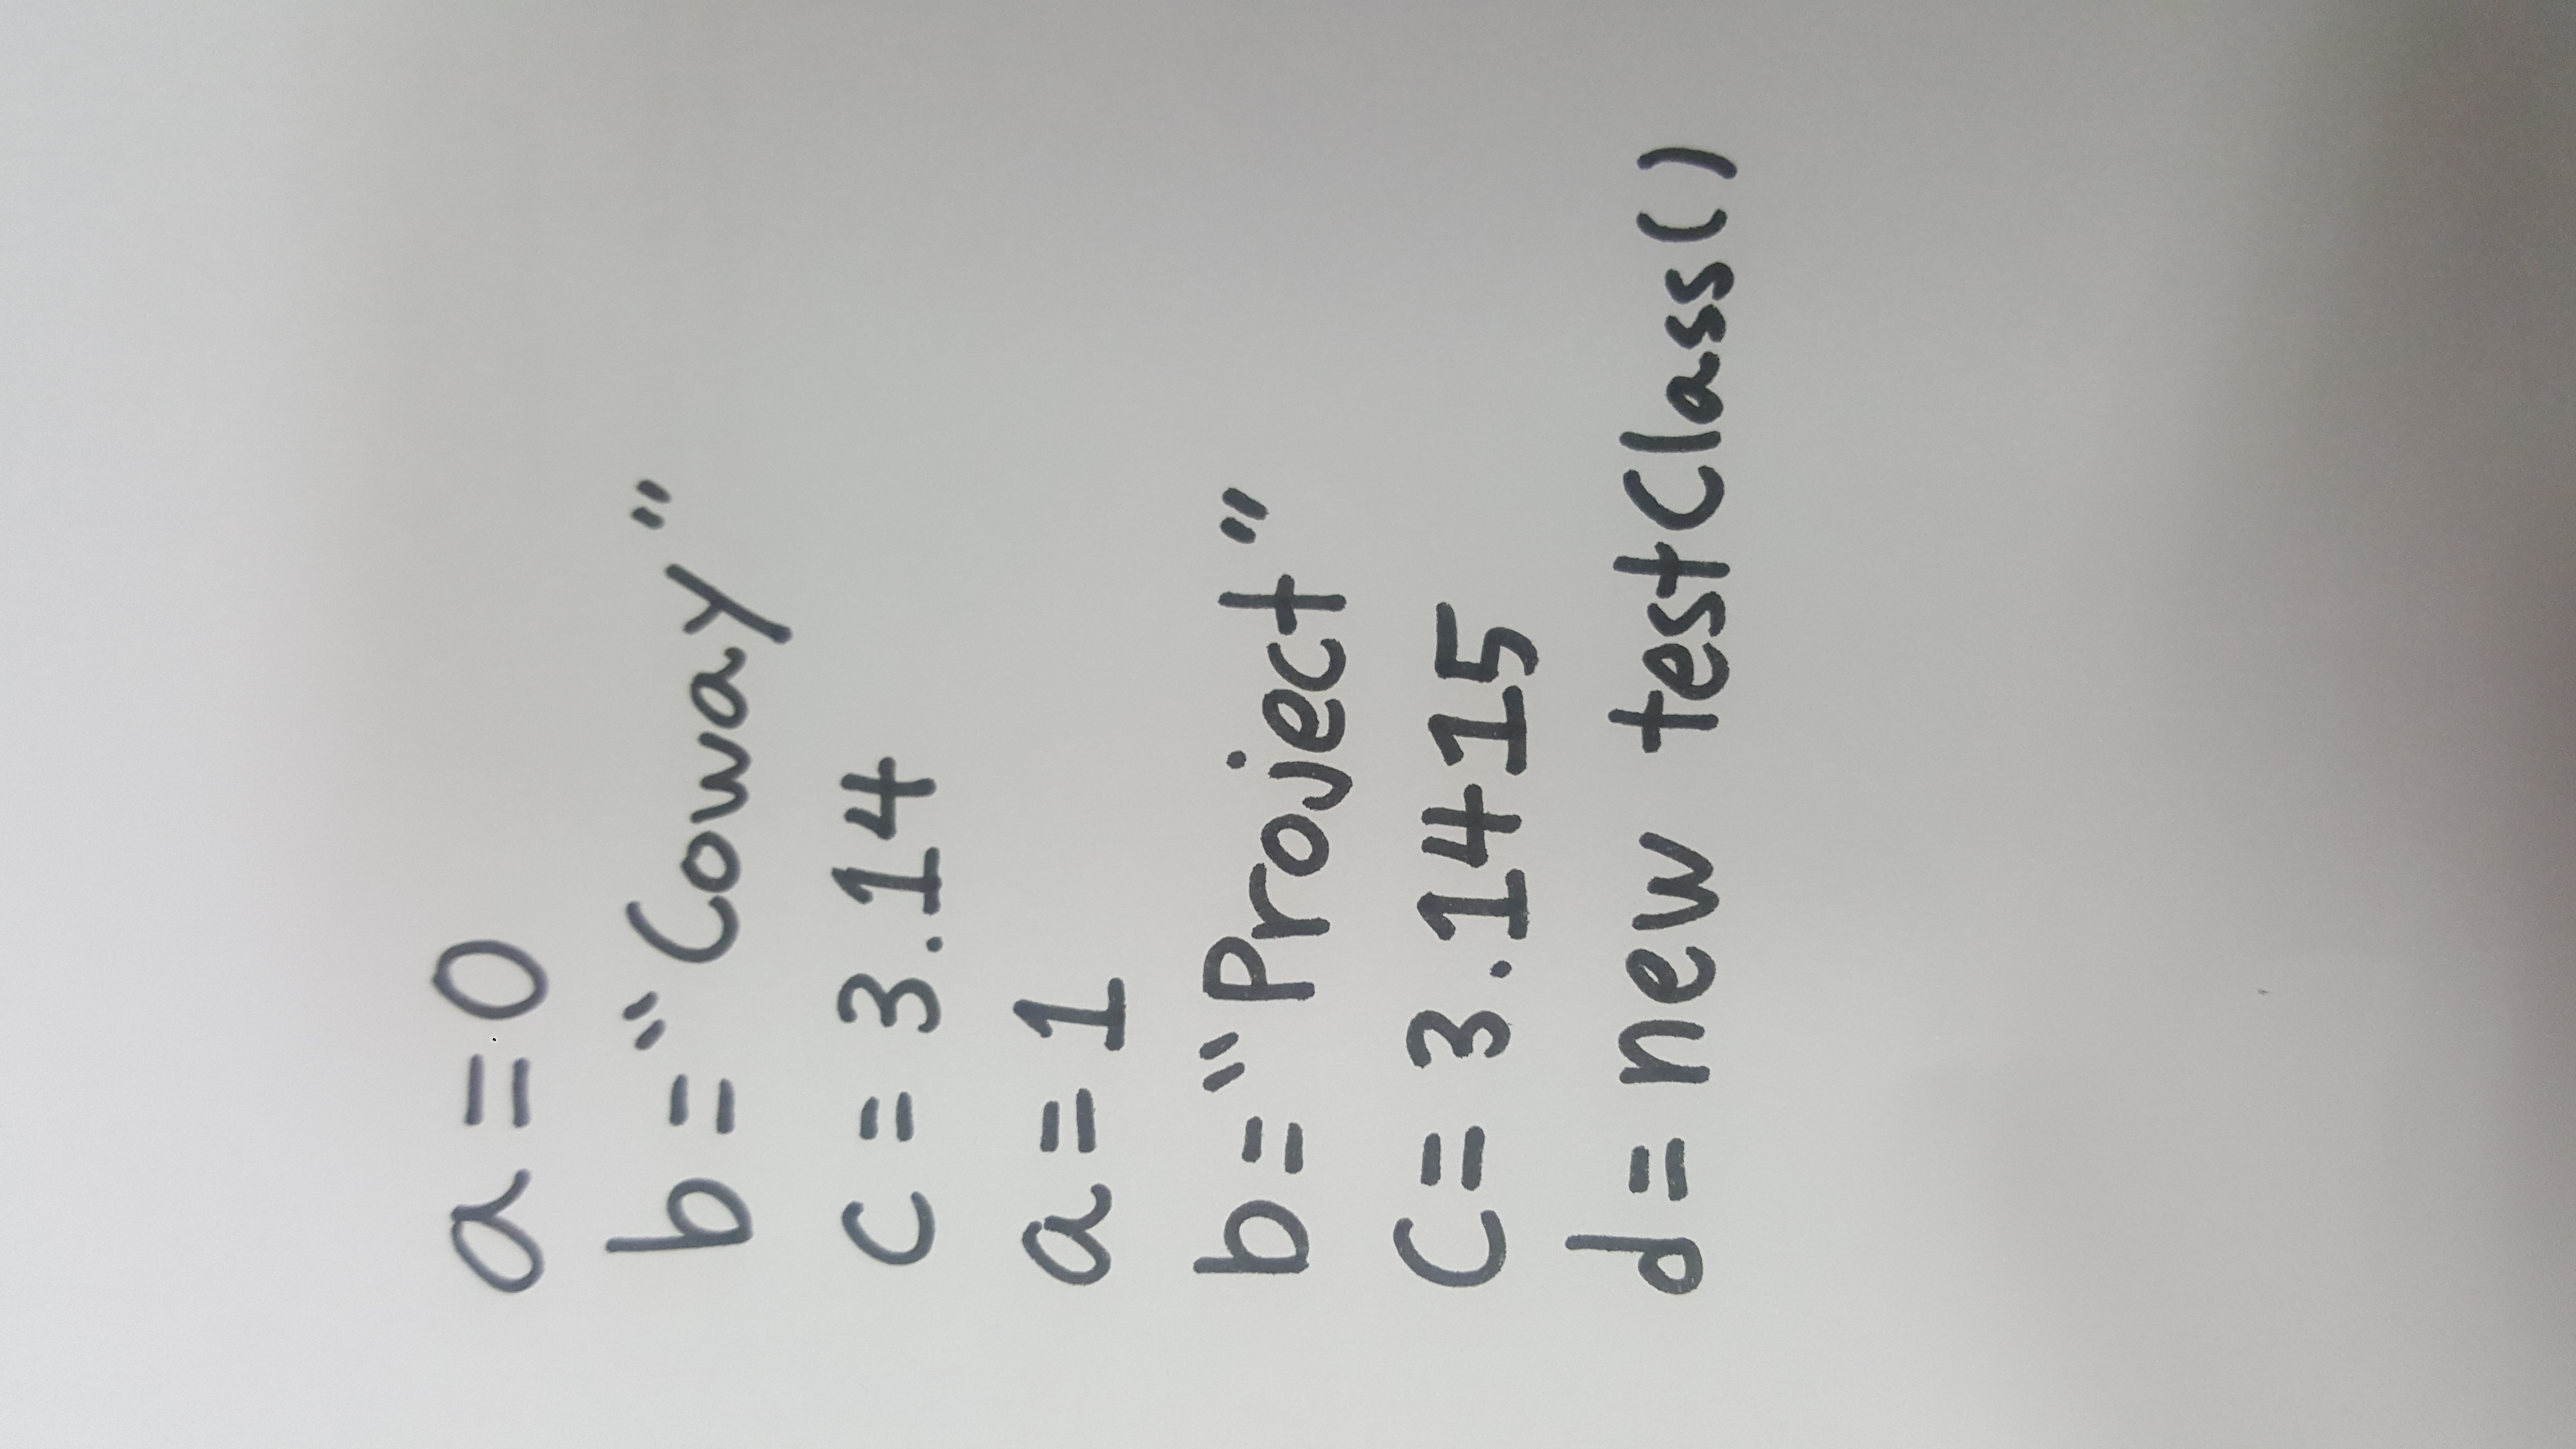 a = 0
b = “Coway”
c = 3.14
a = 1
b = “Project”
C = 3.1415
d = new testClass()